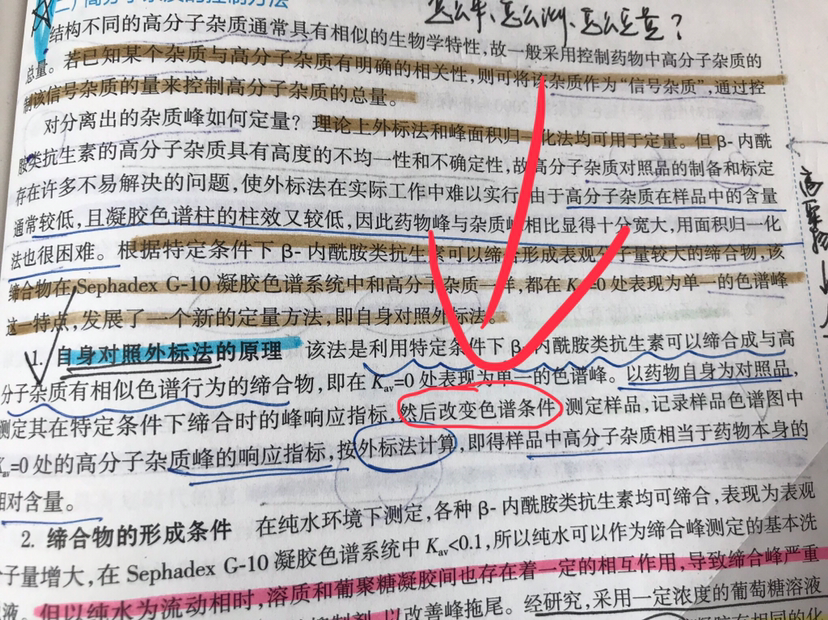 二)高分子杂质的控制方法
怎么来、怎么测、怎么定量?
结构不同的高分子杂质通常具有相似的生物学特性,故一般采用控制药物中高分子杂质的
总量。若已知某个杂质与高分子杂质有明确的相关性,则可将该杂质作为“信号杂质”,通过控
制该信号杂质的量来控制高分子杂质的总量。
对分离出的杂质峰如何定量?理论上外标法和峰面积归一化法均可用于定量。但β-内酰
胺类抗生素的高分子杂质具有高度的不均一性和不确定性,故高分子杂质对照品的制备和标定
存在许多不易解决的问题,使外标法在实际工作中难以实行。由于高分子杂质在样品中的含量
通常较低,且凝胶色谱柱的柱效又较低,因此药物峰与杂质峰相比显得十分宽大,用面积归一化
法也很困难。根据特定条件下β-内酰胺类抗生素可以缔合形成表观分子量较大的缔合物,该
缔合物在Sephadex G-10凝胶色谱系统中和高分子杂质一样,都在Kav=0处表现为单一的色谱峰
这一特点,发展了一个新的定量方法,即自身对照外标法。
1. 自身对照外标法的原理 该法是利用特定条件下β-内酰胺类抗生素可以缔合成与高
分子杂质有相似色谱行为的缔合物,即在Kav=0处表现为单一的色谱峰。以药物自身为对照品,
测定其在特定条件下缔合时的峰响应指标,然后改变色谱条件测定样品,记录样品色谱图中
Kav=0处的高分子杂质峰的响应指标,按外标法计算,即得样品中高分子杂质相当于药物本身的
相对含量。
2. 缔合物的形成条件 在纯水环境下测定,各种β-内酰胺类抗生素均可缔合,表现为表观
分子量增大,在Sephadex G-10凝胶色谱系统中Kav<0.1,所以纯水可以作为缔合峰测定的基本洗
液。但以纯水为流动相时,溶质和葡聚糖凝胶间也存在着一定的相互作用,导致缔合峰严重
以改善峰拖尾。经研究,采用一定浓度的葡萄糖溶液